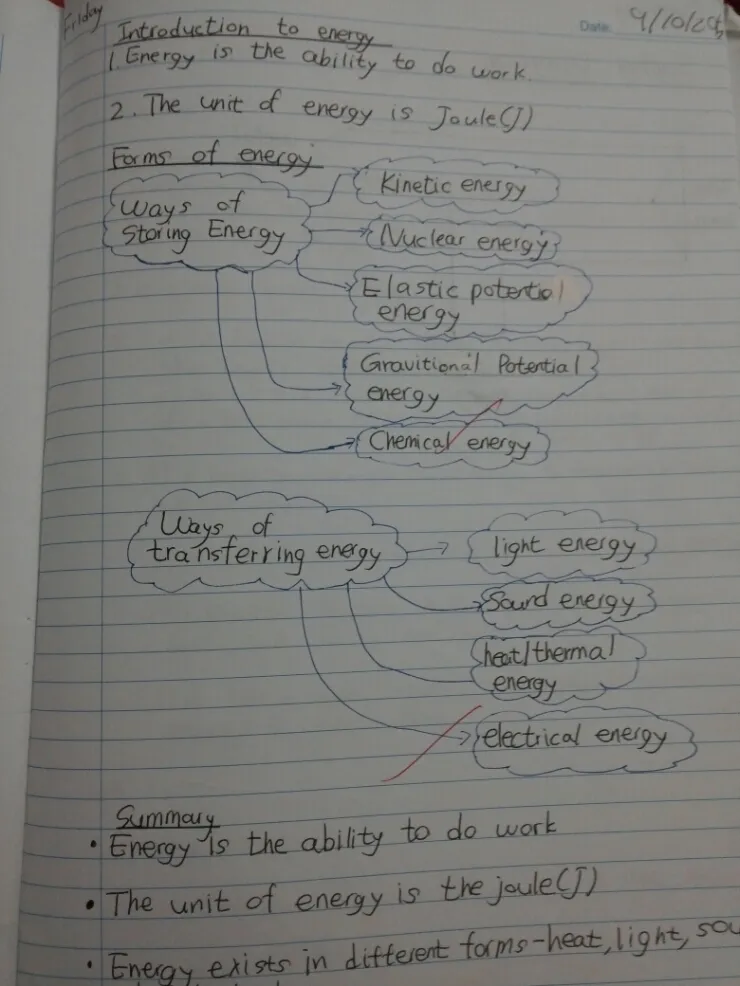 Friday
Date:
Introduction to energy
1. Energy is the ability to do work.
2. The unit of energy is Joule(J)
Forms of energy
Ways of
Storing Energy
Kinetic energy
Nuclear energy
Elastic potential
energy
Gravitional Potential
energy
Chemical energy
Ways of
transferring energy
light energy
Sound energy
heat/thermal
energy
electrical energy
Summary
• Energy is the ability to do work
• The unit of energy is the joule(J)
• Energy exists in different forms-heat, light, sou